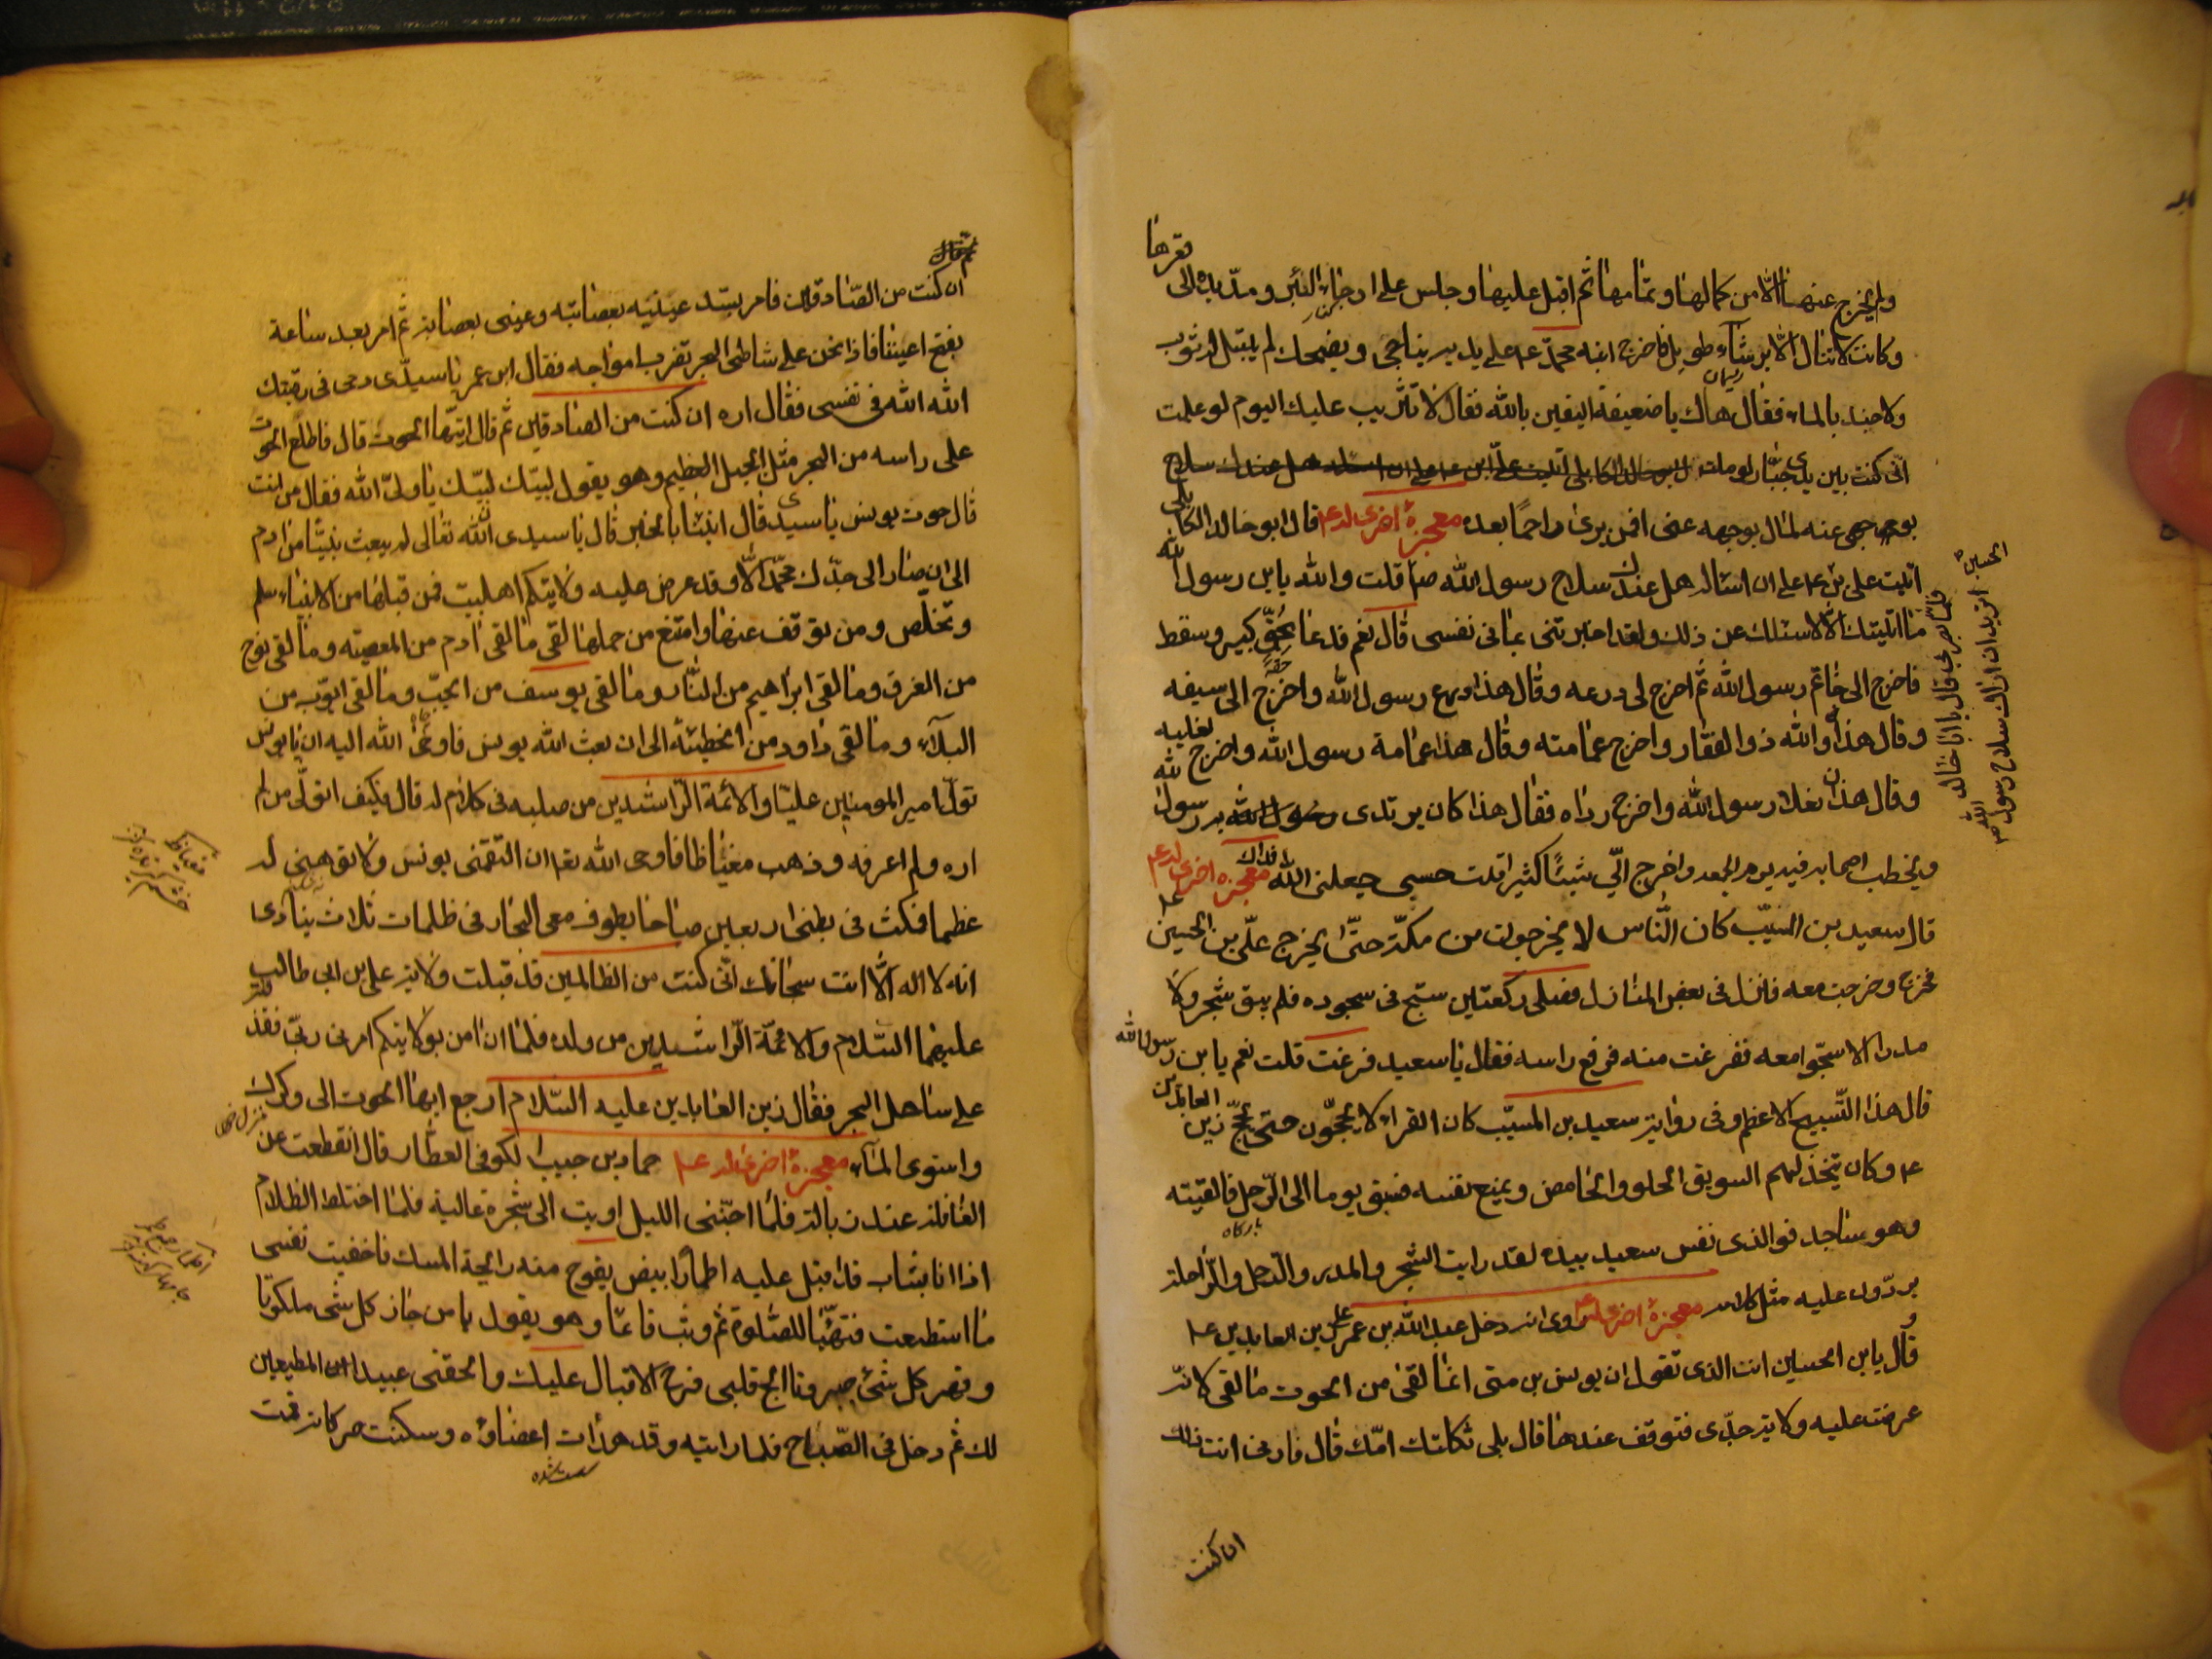 ولم يخرج عنها الا من كمالها وتمامها ثم اقبل عليها وجلس على ارجاء البئر ومدّ يده الى
قعرها
وكانت لا تنال الا برشاء طويل فاخرج ابنه محمد عم على يديه يناجى ويضحك لم يبتل له ثوب
ولا جسد بالماء فقال هاك يا ضعيفة اليقين بالله فقال لا تثريب عليك اليوم لو علمت
ريسمان
انى كنت بين يدى جبّار لو ملت
بوجهى عنه لمال بوجهه عنى افمن يرى راحما بعده معجزة اخرى له عم قال ابو خالد الكابلى
اتيت على بن عم على ان اسئاله هل عندك سلاح رسول الله ص قلت والله يابن رسول الله
الحسين اتريد ان اراك سلاح رسول الله
فلما بصر بى قال يا ابا خالد
ما اتيتك الا لاسئلك عن ذلك ولقد اخبرتنى بما فى نفسى قال نعم فدعا بحقّ كبير وسفط
فاخرج الى خاتم رسول الله ثم اخرج لى درعه وقال هذا درع رسول الله واخرج الى سيفه
وقال هذا والله ذو الفقار واخرج عمامته وقال هذا عمامة رسول الله واخرج نعليه
وقال هذان نعلا رسول الله واخرج رداه فقال هذا كان يرتدى به رسول الله
ويخطب اصحابه فيه يوم الجمعه واخرج الىّ شيئا كثيرا قلت حسبى جعلنى الله فداك معجزه اخرى له عم
قال سعيد بن المسيّب كان النّاس لا يخرجون من مكّة حتّى يخرج علىّ بن الحسين
فخرج وخرجت معه فانزل فى بعض المنازل فصلى ركعتين سبّح فى سجوده فلم يبق شجر ولا
مدر الا سبّحوا معه ففرغت منه فرفع راسه فقال يا سعيد فزعت قلت نعم يابن رسول الله
قال هذا التّسبيح الاعظم وفى رواية سعيد بن المسيّب كان القراء لا يحجّون حتى يحجّ زين العابدين
عم وكان يتخذ لهم السويق الحلو والحامض ويمنع نفسه فسبق يوما الى الرّحل فالقيته
وهو ساجد فو الذى نفس سعيد بيده لقد رايت الشجر والمدر والرّحل والرّاحلة
يردّون عليه مثل كلامه معجزة اخرى له روى انه دخل عبد الله بن عمر على بن العابدين عم
وقال يابن الحسين انت الذى تقول ان يونس بن متى انما لقى من الحوت ما لقى لانّه
عرضت عليه ولاية جدّى فتوقف عندها قال بلى ثكلتك امّك قال فارنى انت ذلك
ان كنت
ان كنت من الصّادقين فامر بشد عينيه بعصابته وعينى بعصابة ثم امر بعد ساعة
بفتح اعيننا فاذا نحن على شاطئ البحر تضرب امواجه فقال ابن عمر يا سيدى دمى فى رقبتك
الله الله فى نفسى فقال اره ان كنت من الصادقين ثم قال ايتها الحوت قال فاطلع الحوت
على راسه من البحر مثل الجبل العظيم وهو يقول لبيك لبيك يا ولىّ الله فقال من انت
قال حوت يونس يا سيدى قال انبئنا بالخبر قال يا سيدى ان الله تعالى لم يبعث نبيّا من ادم
الى ان صار الى جدّك محمّد الا وقد عرض عليه ولايتكم اهلبيت فمن قبلها من الانبياء سلم
وتخلّص ومن توقف عنها وامتنع من حملها لقى ما لقى ادم من المعصيته وما لقى نوح
من الغرق وما لقى ابراهيم من النّار وما لقى يوسف من الجبّ وما لقى ايوّب من
البلاء وما لقى داود من الخطيئه الى ان بعث الله يونس فاوحى الله اليه ان يا يونس
تولّ امير المومنين عليّا والائمة الرّاشدين من صلبه فى كلام له قال فكيف اتولّى من لم
اره ولم اعرفه وذهب مغتاظا فاوحى الله تعا ان التقمى يونس ولا توهنى له
عظما فمكث فى بطنى اربعين صباحا يطوف معى البحار فى ظلمات ثلاث ينادى
انه لا اله الا انت سبحانك انّى كنت من الظالمين قد قبلت ولاية على بن ابى طالب
عليهما السّلام والائمّة الرّاشدين من ولده فلما ان امن بولايتكم امرنى ربّى فقذفته
على ساحل البحر فقال زين العابدين عليه السّلام ارجع ايها الحوت الى وكرك
واستوى الماء معجزة اخرى له عم حماد بن حبيب الكوفى العطّار قال انقطعت عن
القافلة عند زبالة فلمّا اجنّنى الليل اويت الى شجرة عالية فلما اختلط الظلام
اذا انا بشاب قد اقبل عليه اطمار ابيض يفوح منه رائحة المسك فاخفيت نفسى
ما استطعت فتهيّا للصّلوة ثم وثب قائما وهو يقول يا من حاز كل شئ ملكوتا
وقهر كل شئ جبروتا الج قلبى فرح الاقبال عليك والحقنى بميدان المطيعين
لك ثم دخل فى الصّلوة فلما رايته وقد هدأت اعضاؤه وسكنت حركاته قمت